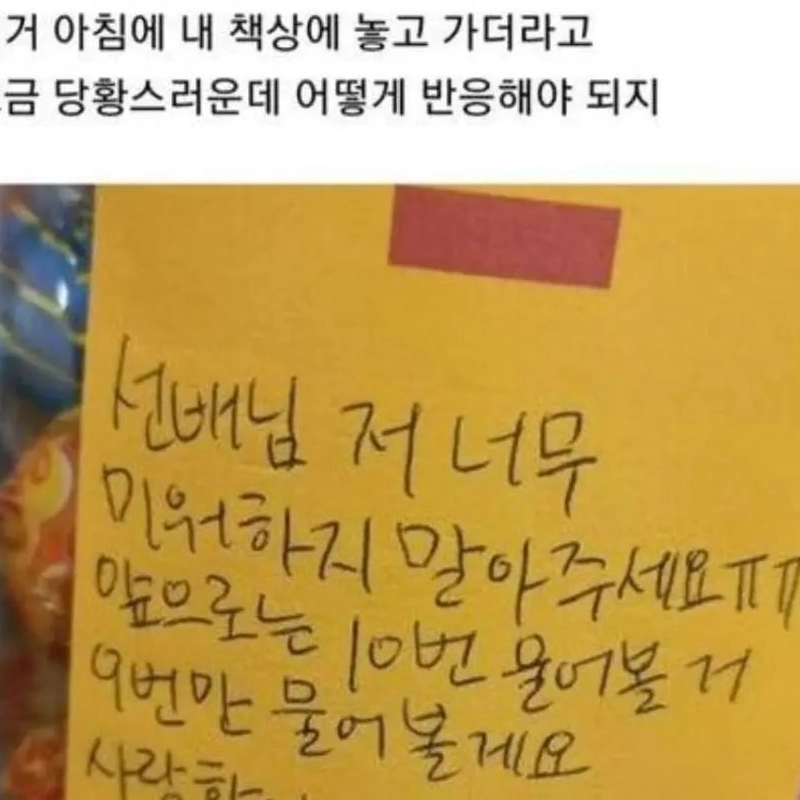 거 아침에 내 책상에 놓고 가더라고
금 당황스러운데 어떻게 반응해야 되지
선배님 저 너무
미워하지 말아주세요ㅠㅠ
앞으로는 10번 물어볼 거
9번만 물어볼게요
사랑합